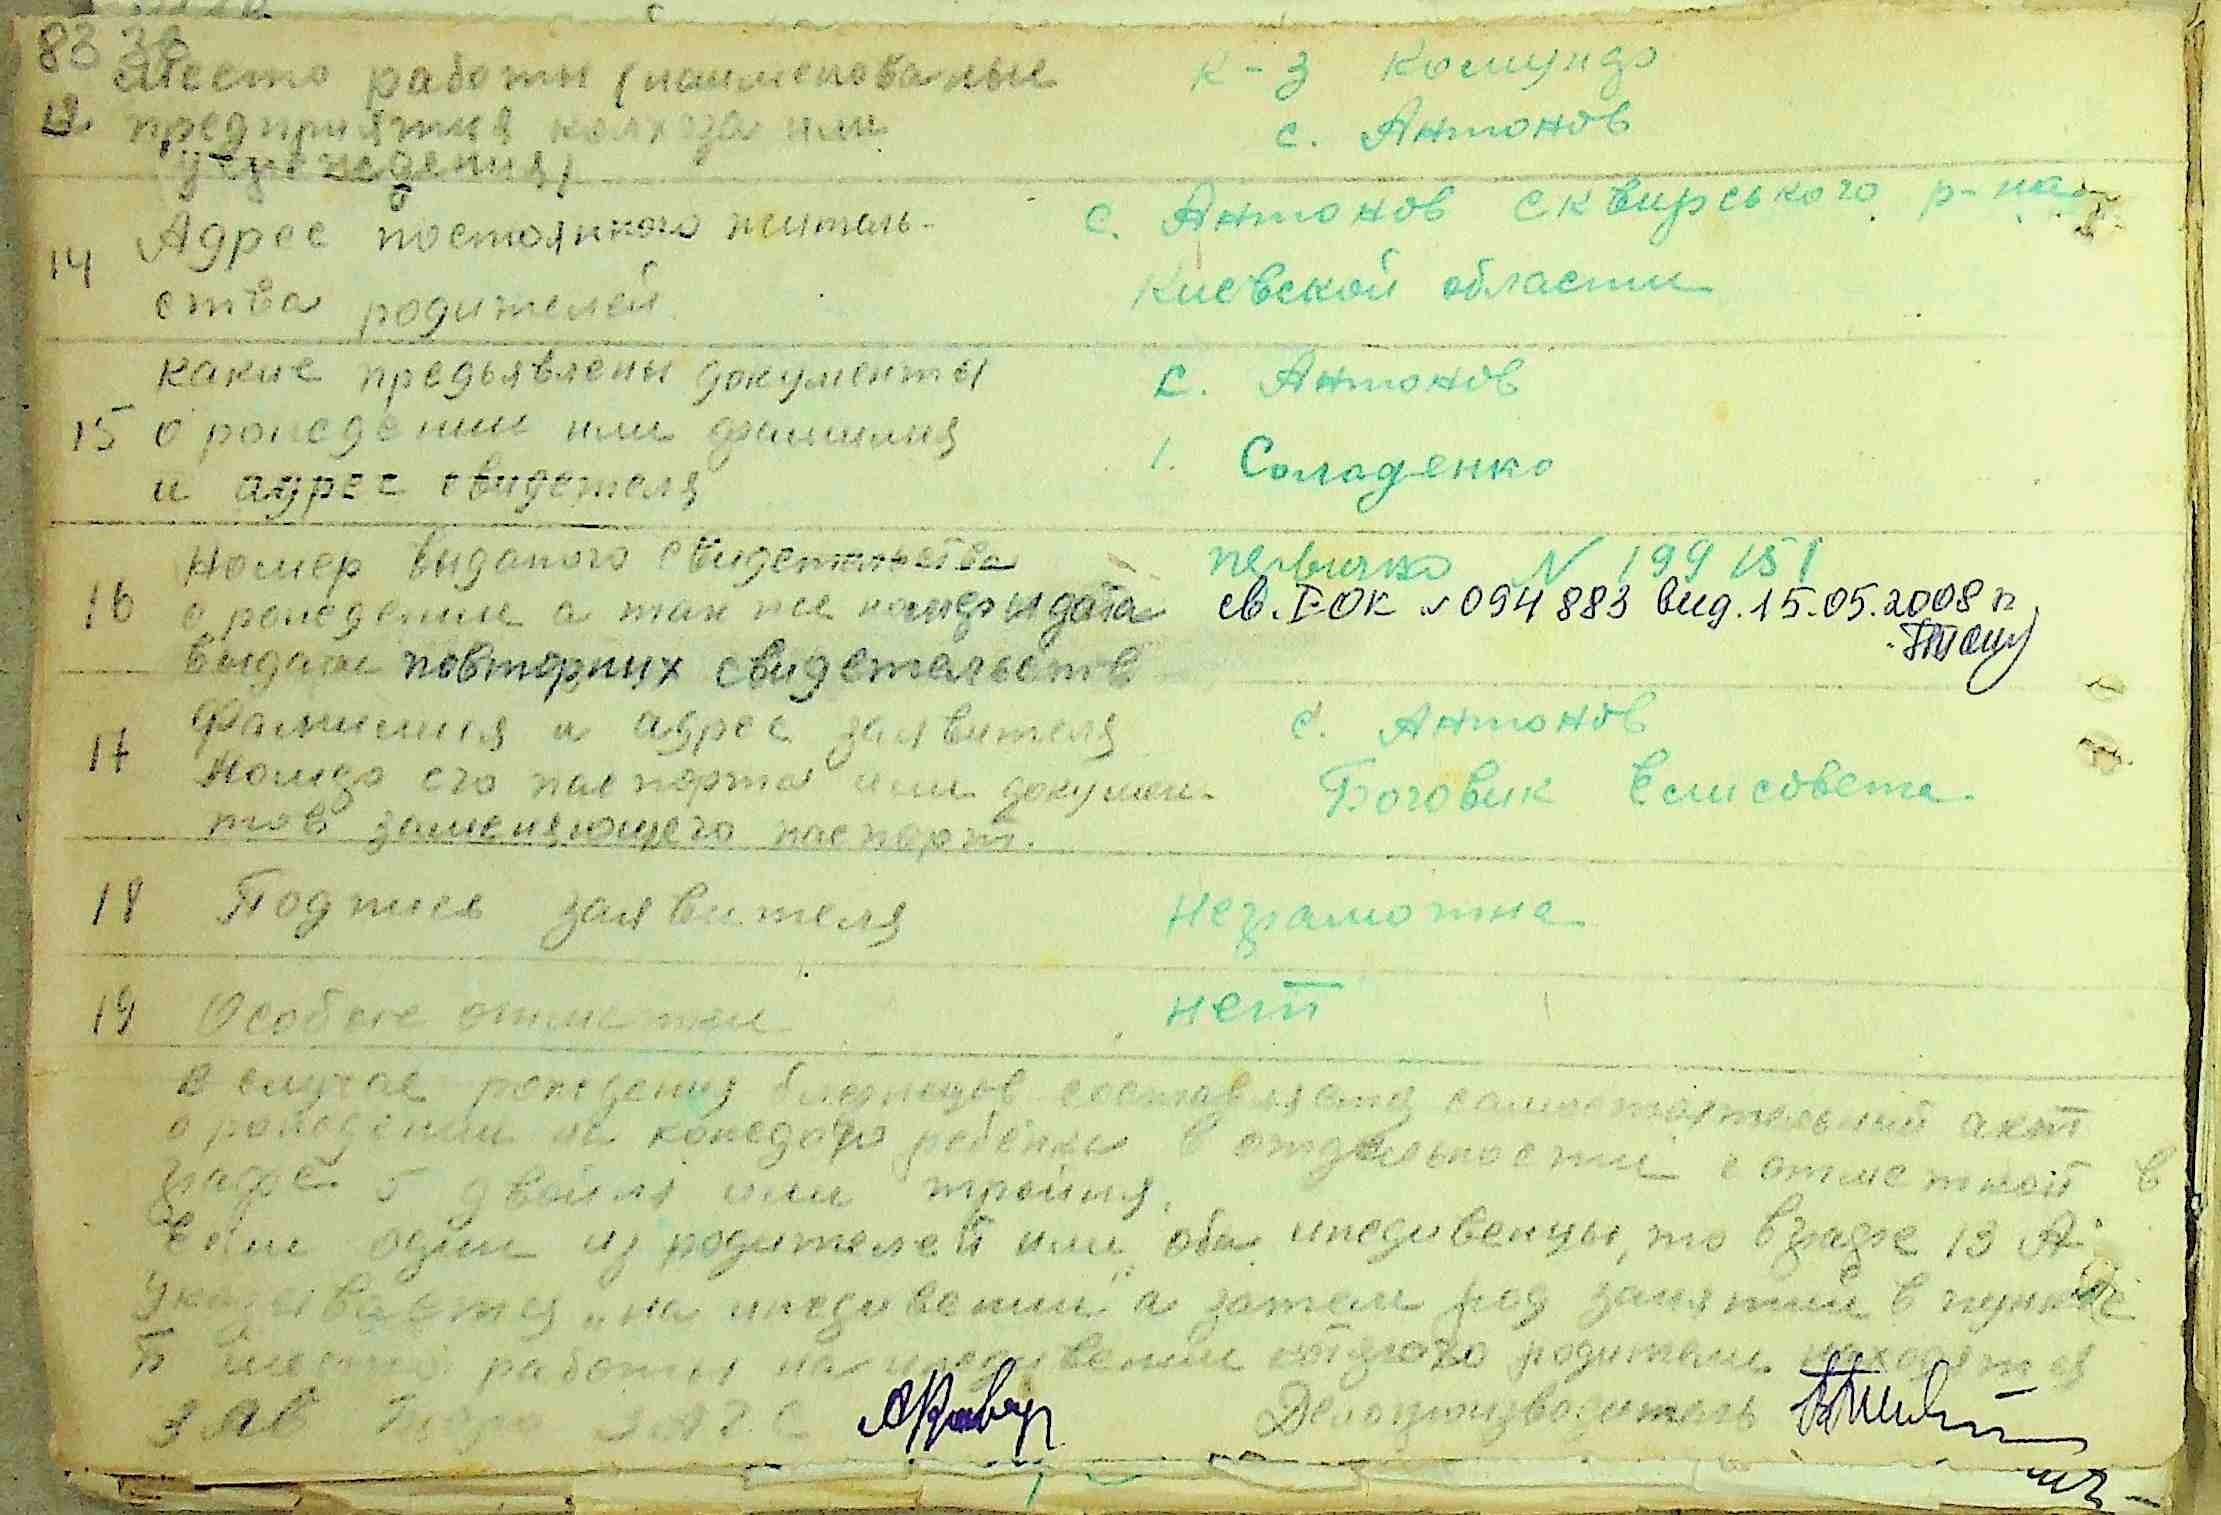 83 36
место работы (наименованые к-з Комунда
13 предприятия колхоза или с. Антонов
учреждения)
Адрес постоянного житель- с. Антонов Сквирського р-на
14
ства родителей Киевской области
какие предъявлены документы с. Антонов
15 о рождении или фамилия
и адрес свидетеля 1. Соладенко
Номер выданого свидетельства первично N 199151
16 о рождении а так же номер и дата св. I-ОК № 094883 вид. 15.05.2008 р.
выдачи повторних свидетельств
Фамилия и адрес заявителя с. Антонов
17
Номер его паспорта или докумен- Боговик Елисовета
тов заменяющего паспорт.
18 Подпись заявителя неграмотна
19 Особые отметки нет
В случае рождения близнецов составляется самостоятельный акт
о рождении на каждого ребенка в отдельности с отметкой в
графе 5 двойня или тройня.
Если один из родителей или оба иждивенцы, то в графе 13 А
указывается „на иждивении" а затем род занятий в пункте
Б место работы на иждивении которого родители находятся
Зав Бюро ЗАГС Делопроизводитель